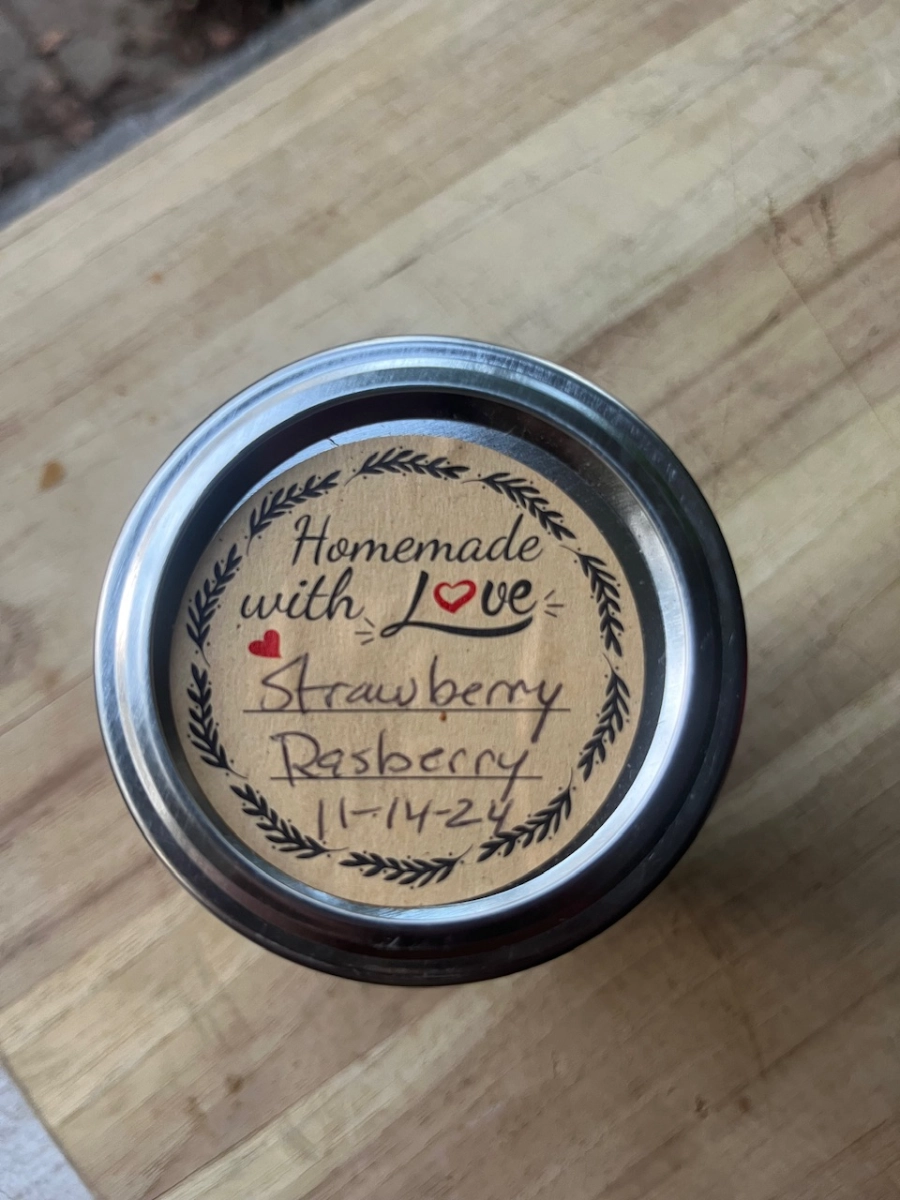 Homemade
with Love
Strawberry
Rasberry
11-14-24